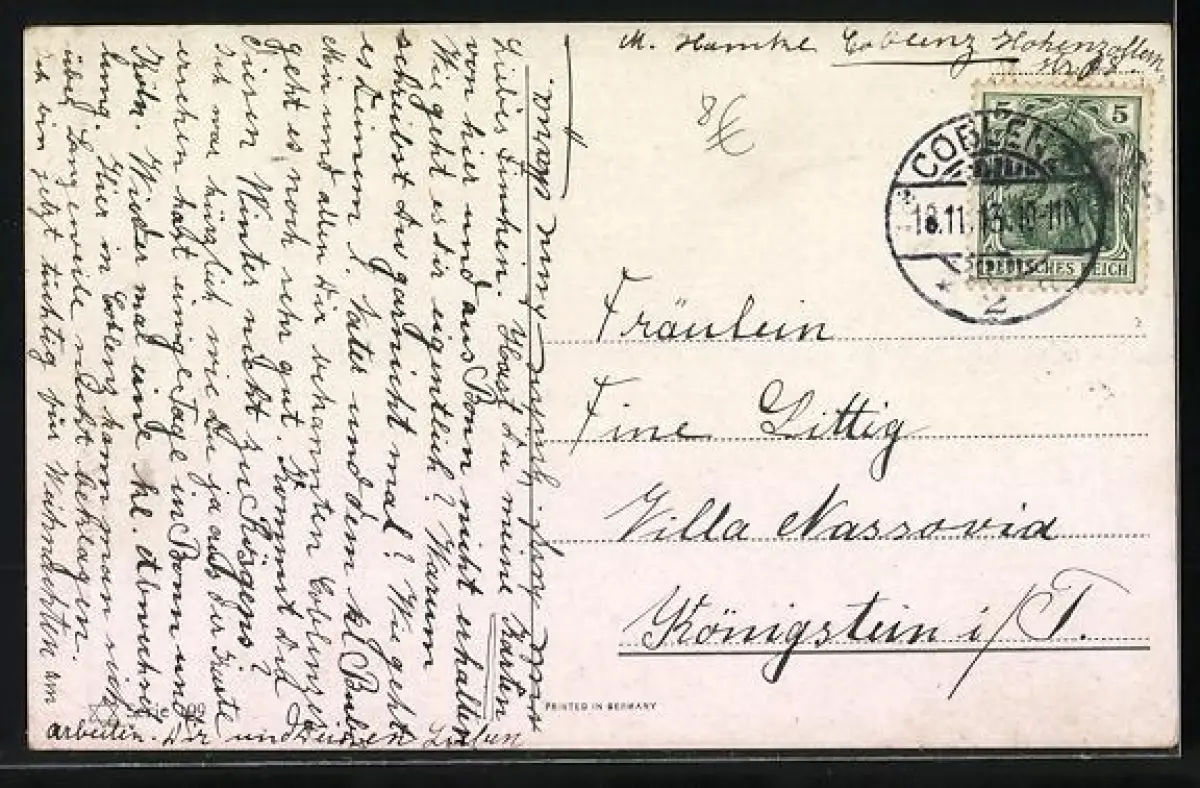 M. Hamke Coblenz Hohenzollern
Nr. 93.
8€
COBLENZ
18.11.13. 10-11N
* 2
5 5
DEUTSCHES REICH
Fräulein
Fine Littig
Villa Nassovia
Königstein i/T.
PRINTED IN GERMANY
Liebes Finchen. Hast Du meine Karten
von hier und aus Bonn nicht erhalten
Wie geht es Dir eigentlich? Warum
schreibst Du garnicht mal? Wie geht
es Deinem l. Vater und dem kl. Bubi
Hier und allen Dir bekannten Coblenzer
geht es noch sehr gut. Kommst Du
diesen Winter nicht zu Hüsgens?
Ich war kürzlich wie Du ja aus der Karte
ersehen hast einige Tage in Bonn und
Köln. Wieder mal eine kl. Abwechse
lung. Hier in Coblenz kann man sich
über Langeweile nicht beklagen.
Ich bin jetzt tüchtig für Weihnachten am
arbeiten. Dir und Deinen Lieben
Maria.